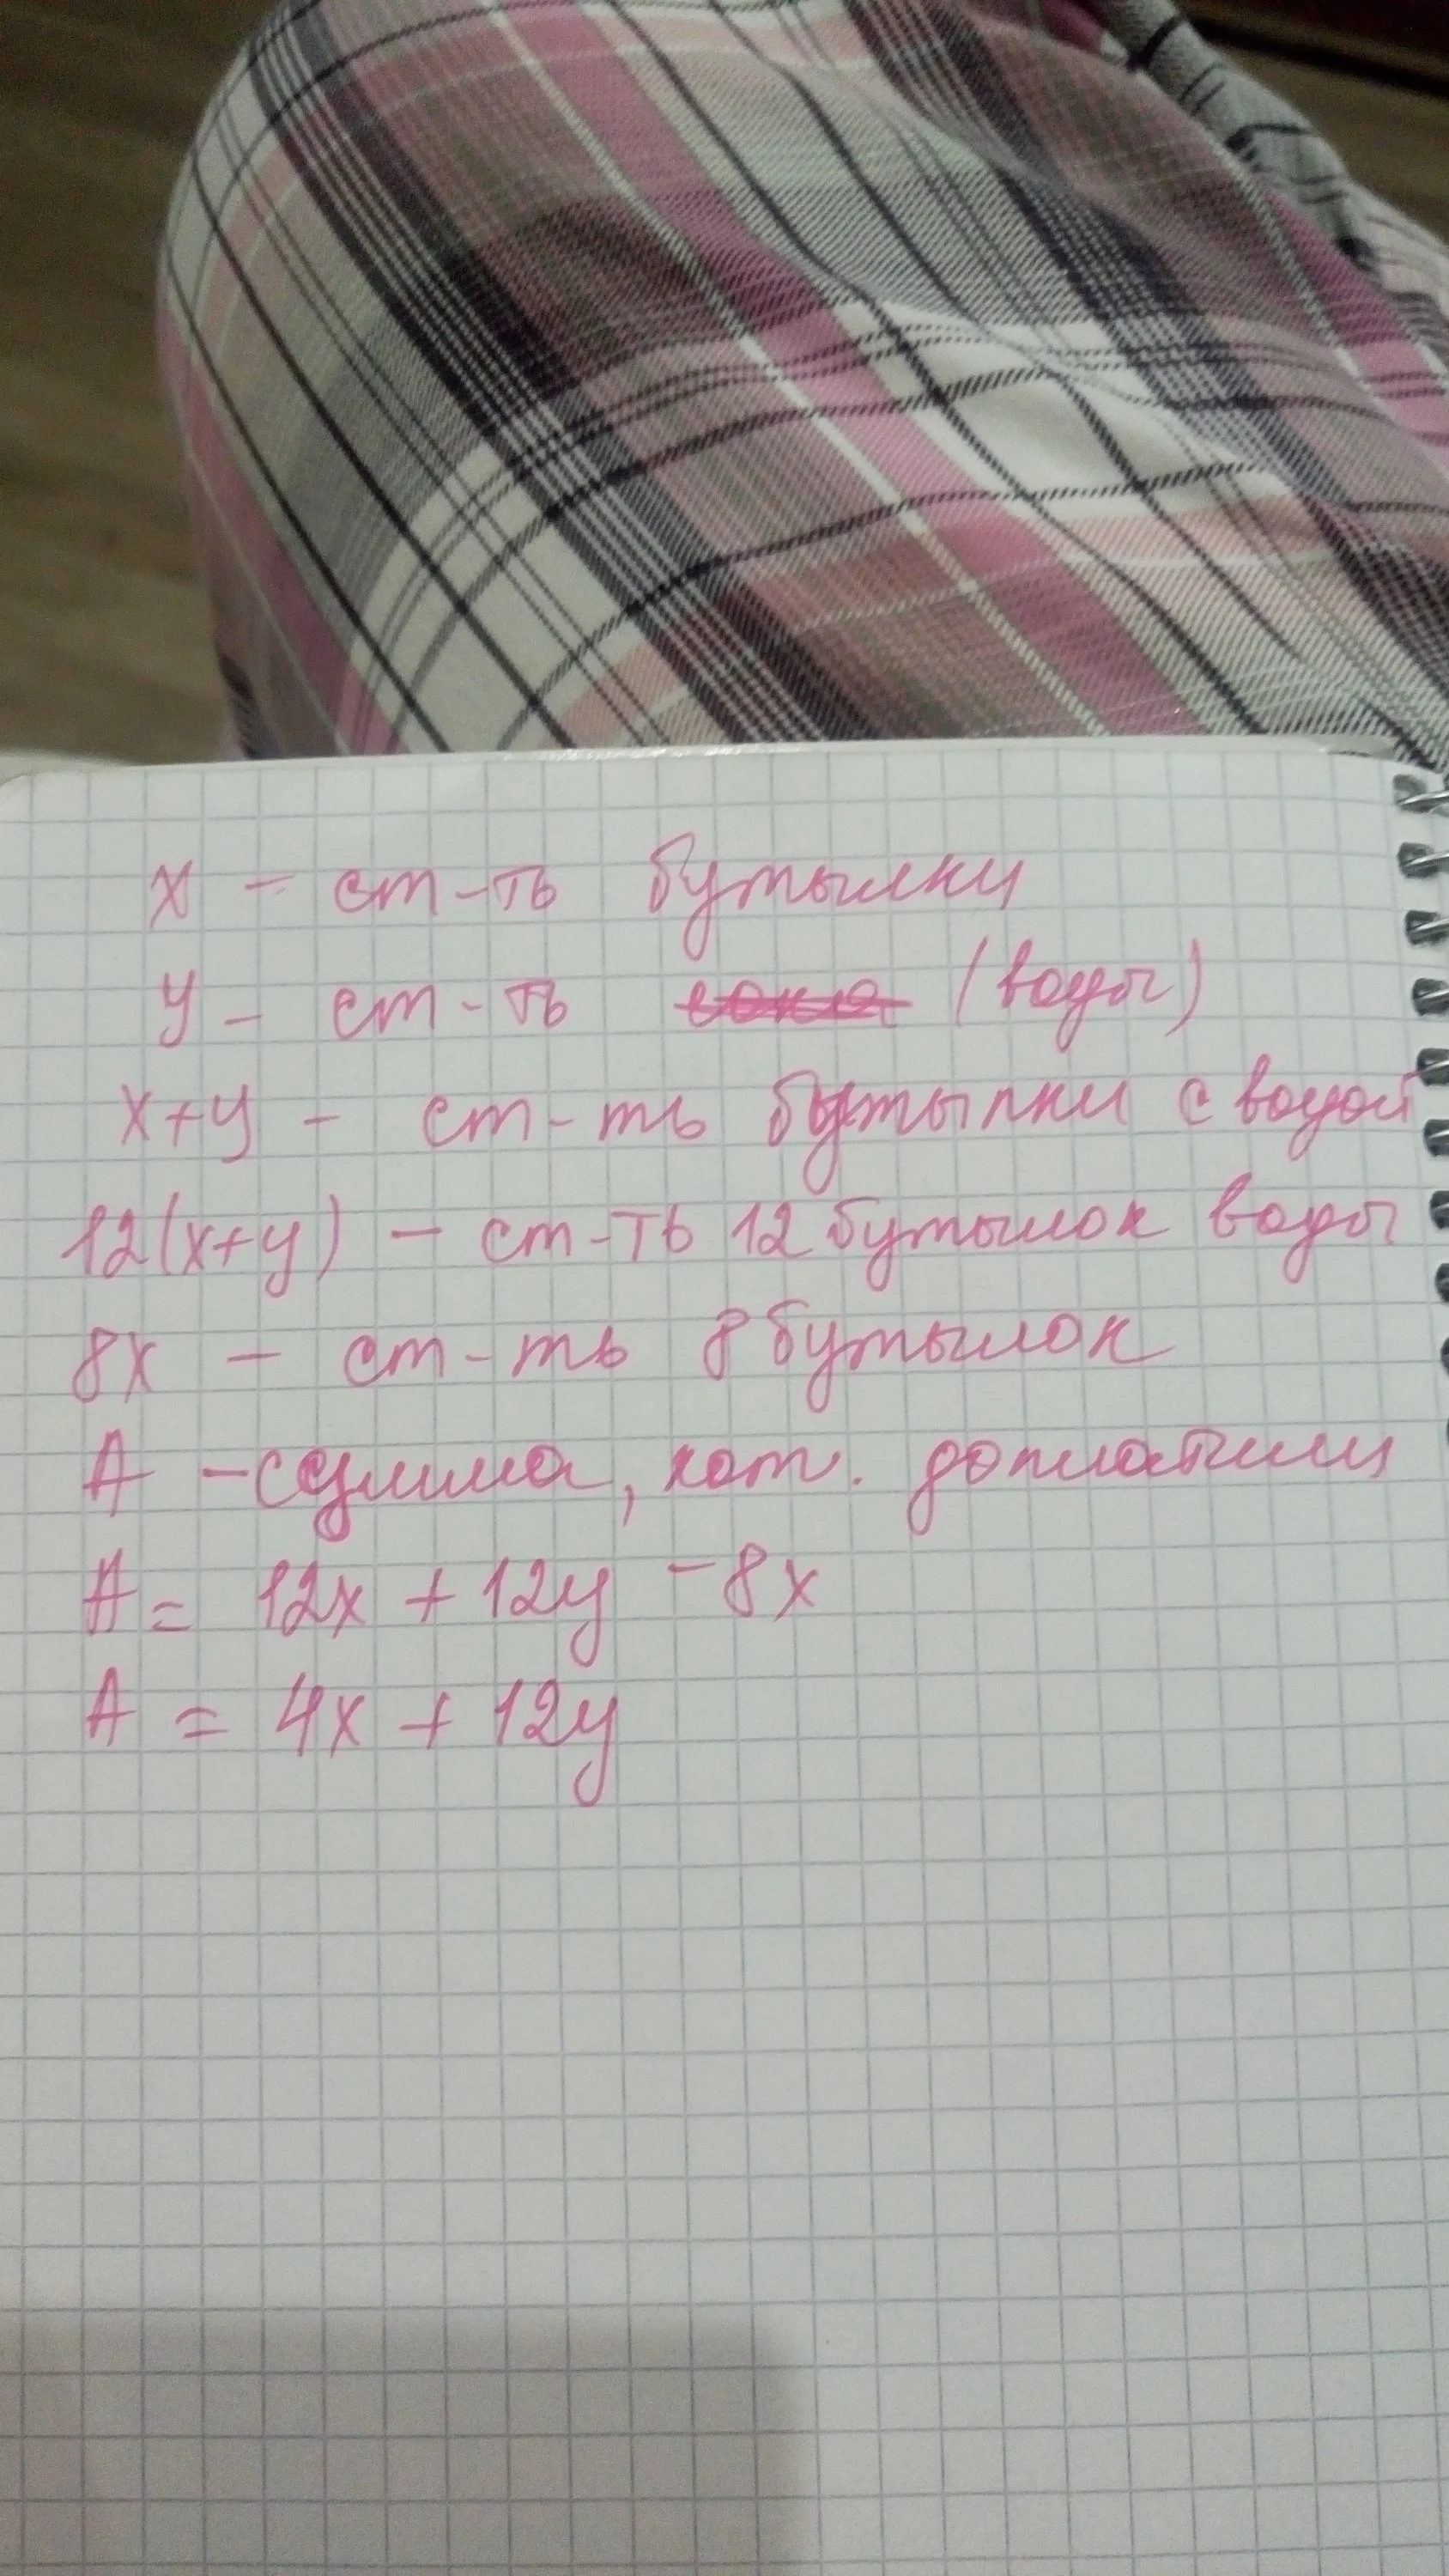 x – ст-ть бутылки
y – ст-ть сока (воды)
x+y – ст-ть бутылки с водой
12(x+y) – ст-ть 12 бутылок воды
8x – ст-ть 8 бутылок
A – сумма, кот. доплатили
A = 12x + 12y – 8x
A = 4x + 12y